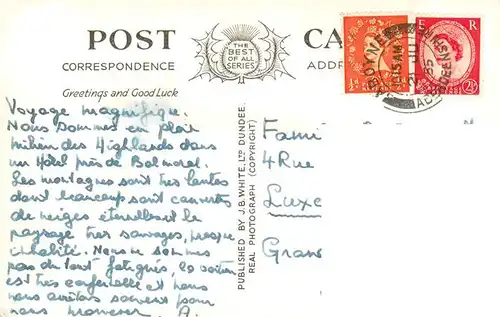 POST
CA
THE
BEST
OF ALL
SERIES
CORRESPONDENCE
ADDR
Greetings and Good Luck
½D
E R
2½D
ABOYNE
Voyage magnifique.
Nous sommes en plein
milieu des Highlands dans
un Hôtel près de Balmoral.
Les montagnes sont très hautes
dont beaucoup sont couvertes
de neiges éternelles et le
paysage très sauvages, presque
inhabité. Nous ne sommes
pas du tout fatigués, la voiture
est très confortable et nous
nous arrêtons souvent pour
nous promener. A.
PUBLISHED BY J.B. WHITE, LTD DUNDEE.
REAL PHOTOGRAPH (COPYRIGHT)
Fami
4 Rue
Luxe
Gran